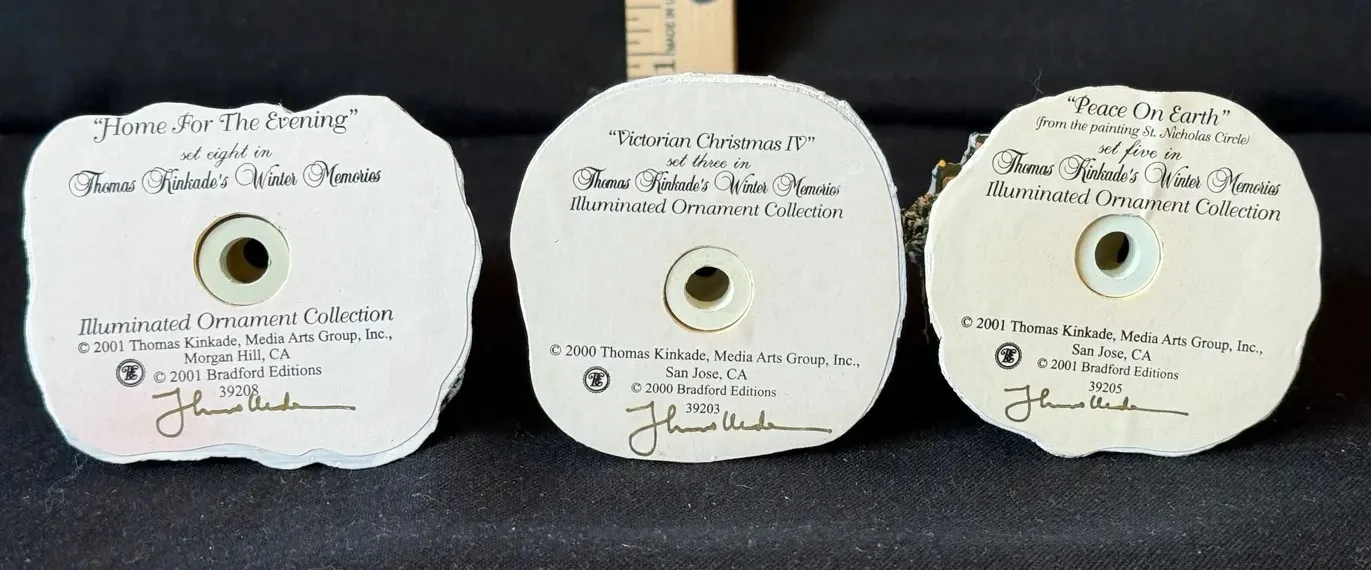 1
MADE IN
"Home For The Evening"
set eight in
Thomas Kinkade's Winter Memories
Illuminated Ornament Collection
© 2001 Thomas Kinkade, Media Arts Group, Inc.,
Morgan Hill, CA
© 2001 Bradford Editions
39208
"Victorian Christmas IV"
set three in
Thomas Kinkade's Winter Memories
Illuminated Ornament Collection
© 2000 Thomas Kinkade, Media Arts Group, Inc.,
San Jose, CA
© 2000 Bradford Editions
39203
"Peace On Earth"
(from the painting St. Nicholas Circle)
set five in
Thomas Kinkade's Winter Memories
Illuminated Ornament Collection
© 2001 Thomas Kinkade, Media Arts Group, Inc.,
San Jose, CA
© 2001 Bradford Editions
39205